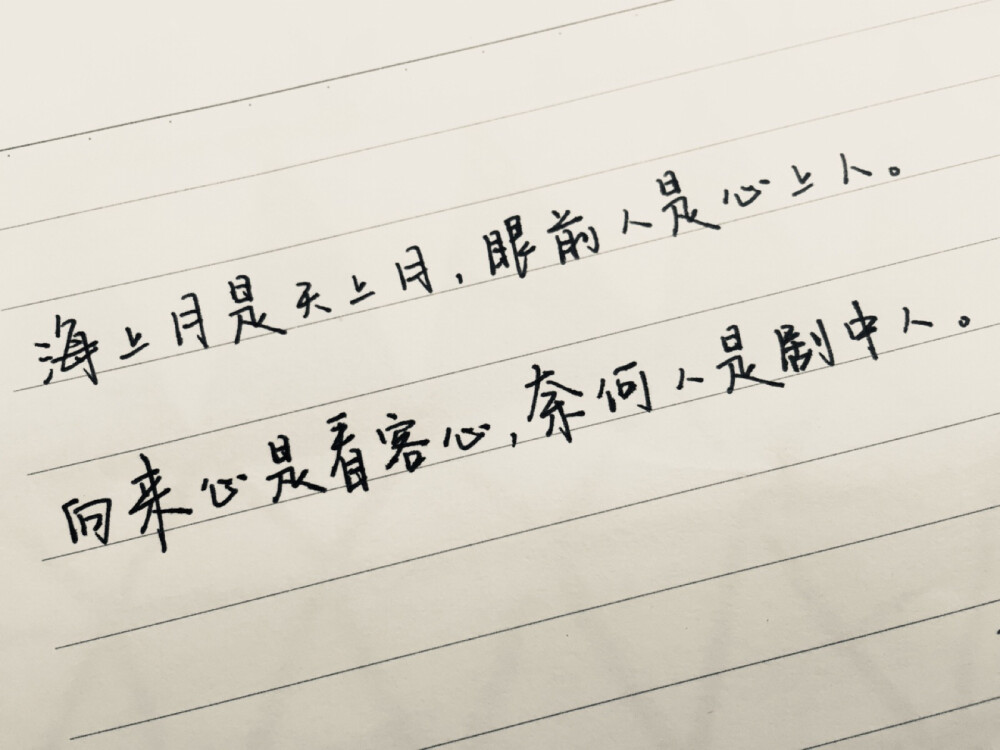 海上月是天上月,眼前人是心上人。
向来心是看客心,奈何人是剧中人。